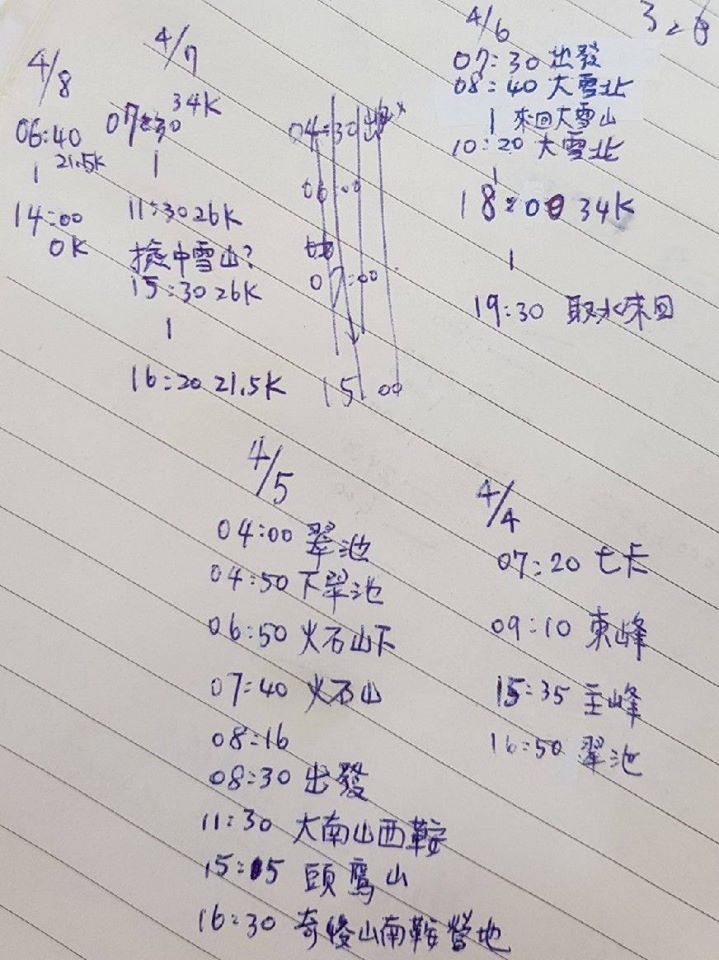 4/8
06:40
| 21.5K
14:00
0K
4/7
34K
07:30
|
11:30 26K
撿中雪山?
15:30 26K
|
16:20 21.5K
04:30 出
06:00
07:00
15:00
4/6
07:30 出發
08:40 大雪北
| 來回大雪山
10:20 大雪北
|
18:00 34K
|
19:30 取水來回
4/5
04:00 翠池
04:50 下翠池
06:50 火石山下
07:40 火石山
08:16
08:30 出發
11:30 大南山西鞍
15:15 頭鷹山
16:30 奇悛山南鞍營地
4/4
07:20 七卡
09:10 東峰
15:35 主峰
16:50 翠池